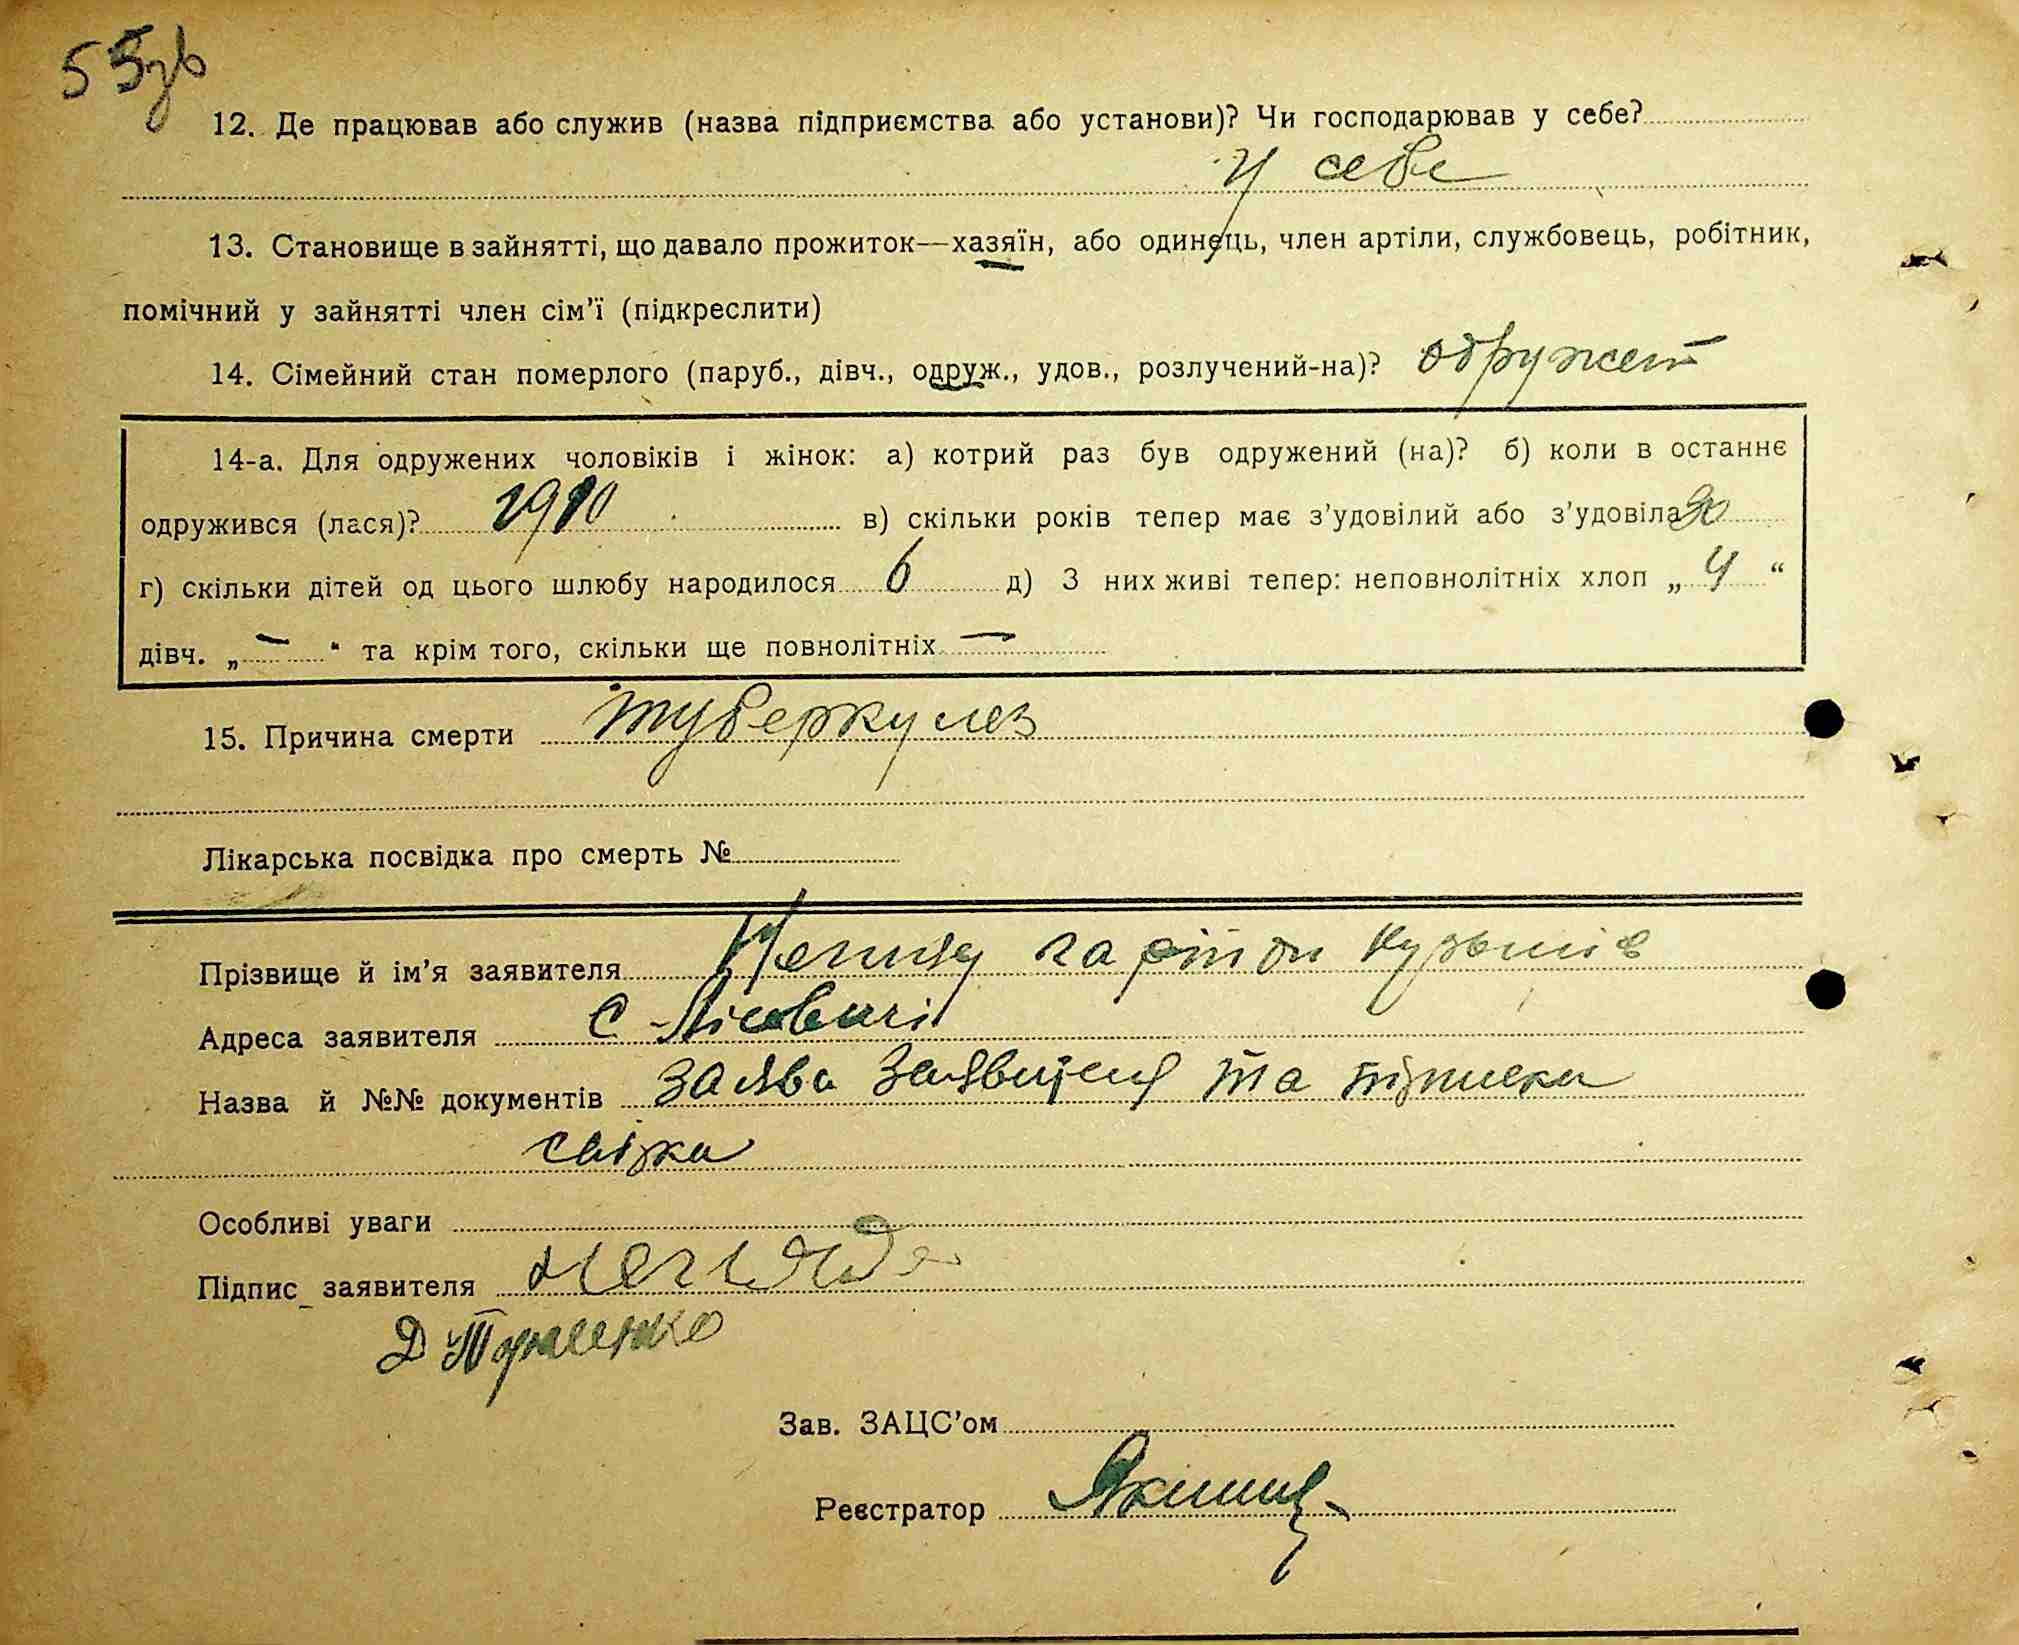 55зв
12. Де працював або служив (назва підприємства або установи)? Чи господарював у себе?
у себе
13. Становище в зайнятті, що давало прожиток—хазяїн, або одинець, член артіли, службовець, робітник,
помічний у зайнятті член сім'ї (підкреслити)
14. Сімейний стан померлого (паруб., дівч., одруж., удов., розлучений-на)? одружен
14-а. Для одружених чоловіків і жінок: а) котрий раз був одружений (на)? б) коли в останнє
одружився (лася)? 1910 в) скільки років тепер має з'удовілий або з'удовіла
г) скільки дітей од цього шлюбу народилося 6 д) З них живі тепер: неповнолітніх хлоп „ 4 “
дівч. „ — “ та крім того, скільки ще повнолітніх —
15. Причина смерти туберкулез
Лікарська посвідка про смерть №
Прізвище й ім'я заявителя
Адреса заявителя с Лісовичі
Назва й №№ документів заява заявителя та підписка
свідка
Особливі уваги
Підпис заявителя
Зав. ЗАЦС'ом
Реєстратор